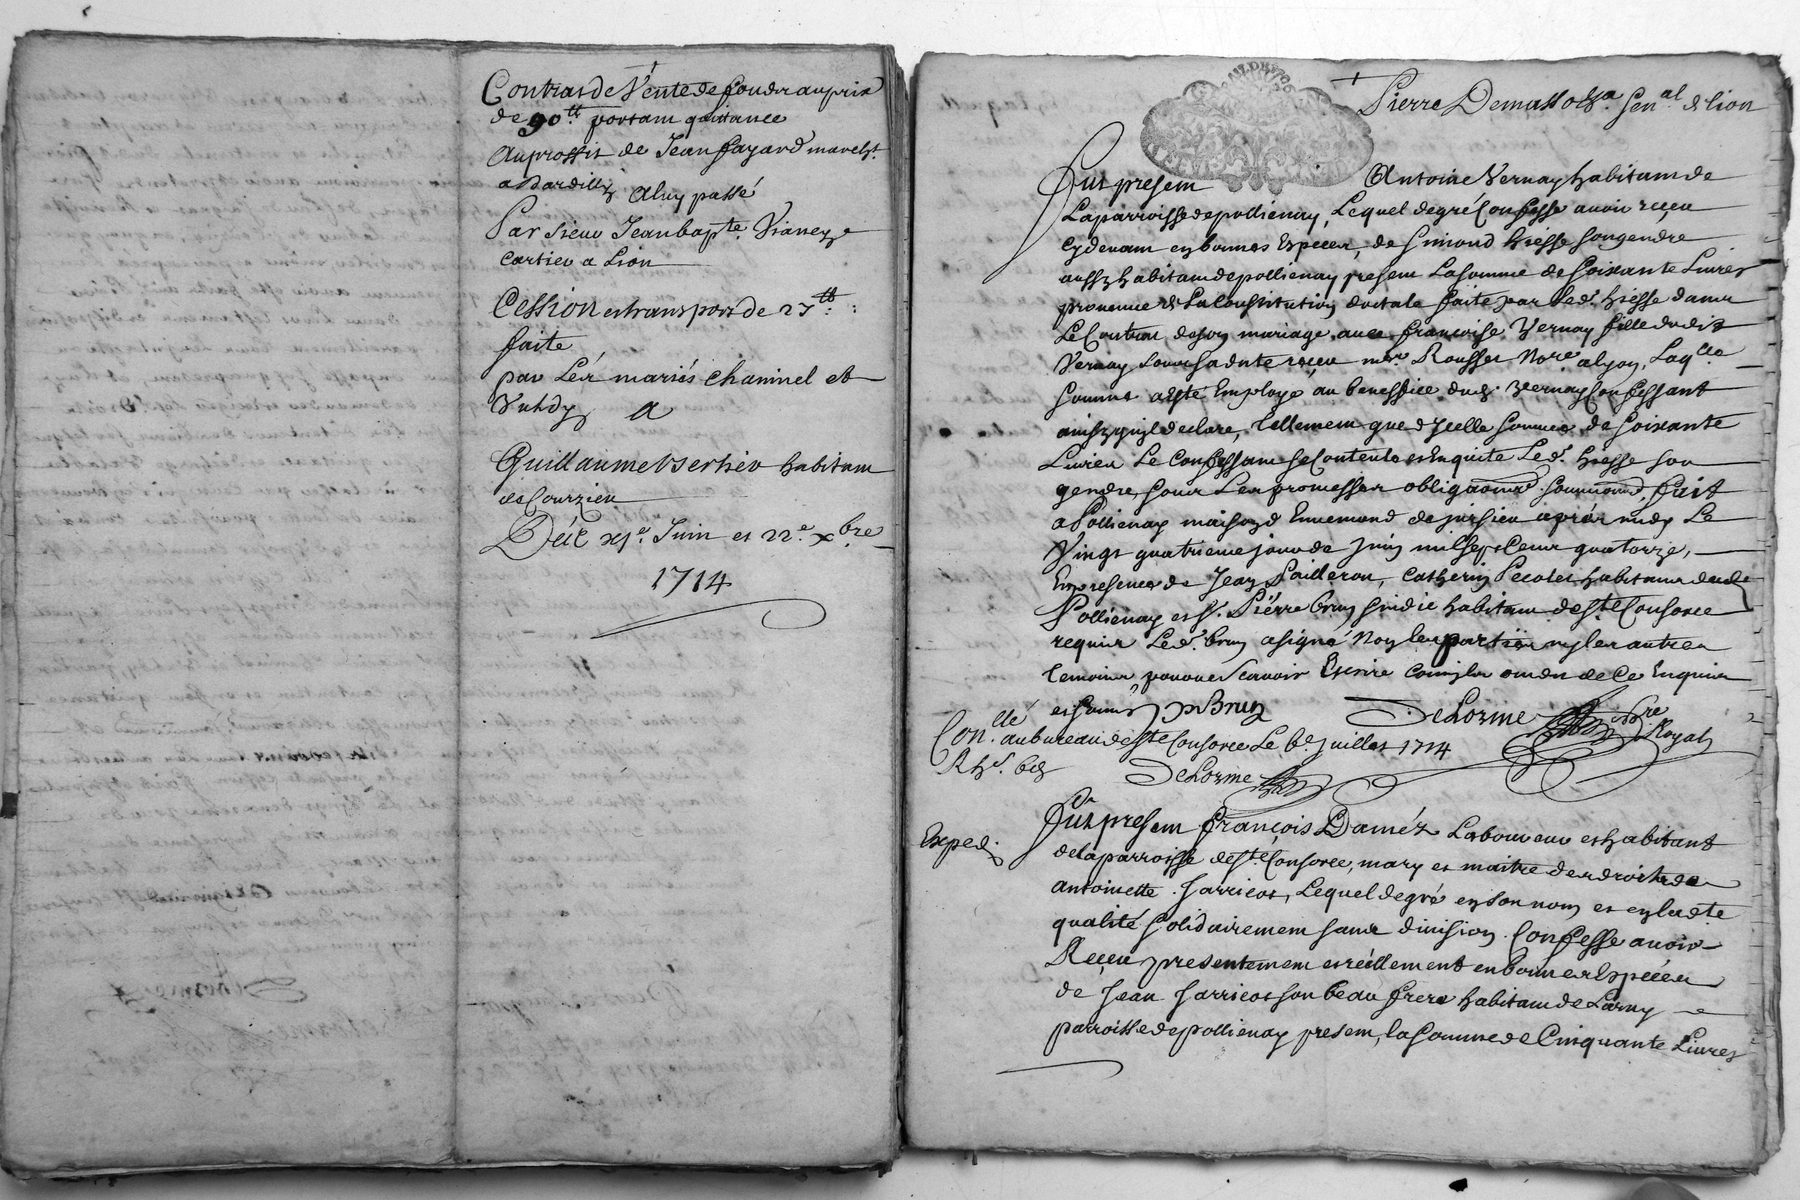 Contrat de Vente de fonds au prix
de 90 tt. portant quittance
Au proffit de Jean fayard march.t
a Bardilly Aluy passé
Par sieur Jean bapte. Vianey
cartier a Lion
Cession et transport de 27 tt. :
faite
par Les mariés Chaninel et
a
Guillaume Berhier habitant
de Courzieu
xbre
1714
Pierre Demasso Sen.al de lion
Fut present Antoine Vernay habitant de
La parroisse de pollienay, Lequel de gré Confesse avoir reçeu
Cy devant en bonnes Especes, de Simond hiesse son gendre
aussy habitant de pollienay present La somme de Soixante Livres
provenue de La Constitution doctale faite par Led. hiesse dans
Le Contrat de son mariage avec françoise Vernay fille dudit
Vernay sous sa dnte reçeu me. Rousset Nore a lyon, Laqlle
somme a esté Employé au beneffice dud. Vernay Confessant
ainsy quil declare, tellement que d'ycelle somme de Soixante
Livres Le Confessant se Contente et Enquite Led. hiesse son
gendre, sous Les promesses obligaons soumions, fait
a Pollienay maison d'Ennemond de jussieu aprés midy Le
Vingt quatrieme jour de juin mil sept Cent quatorze,
En presence de Jean Pailleron, Catherin habitans dudt
Pollienay et Sr. Pierre brun sindic habitant de Ste Consorce
requis Led. brun a signé Non les parties ny les autres
temoins pour ne scavoir Escrire Comm'ils ont dit de Ce Enquis
et sommés P Brun DeLorme Nre
Royal
Con.llé au bureau de Ste Consorce Le 6e Juillet 1714
DeLorme
Exped.
Fut present François Daméz Laboureur et habitant
de la parroisse de Ste. Consorce, mary et maitre des droits de
antoinette Jarricot, Lequel de gré en son nom et en ladte
qualité solidairement sans division Confesse avoir
Reçeu presentement et réellement en bonnes Especes
de Jean Jarricot son beau frere habitant de Larny
parroisse de pollienay present, la somme de Cinquante Livres